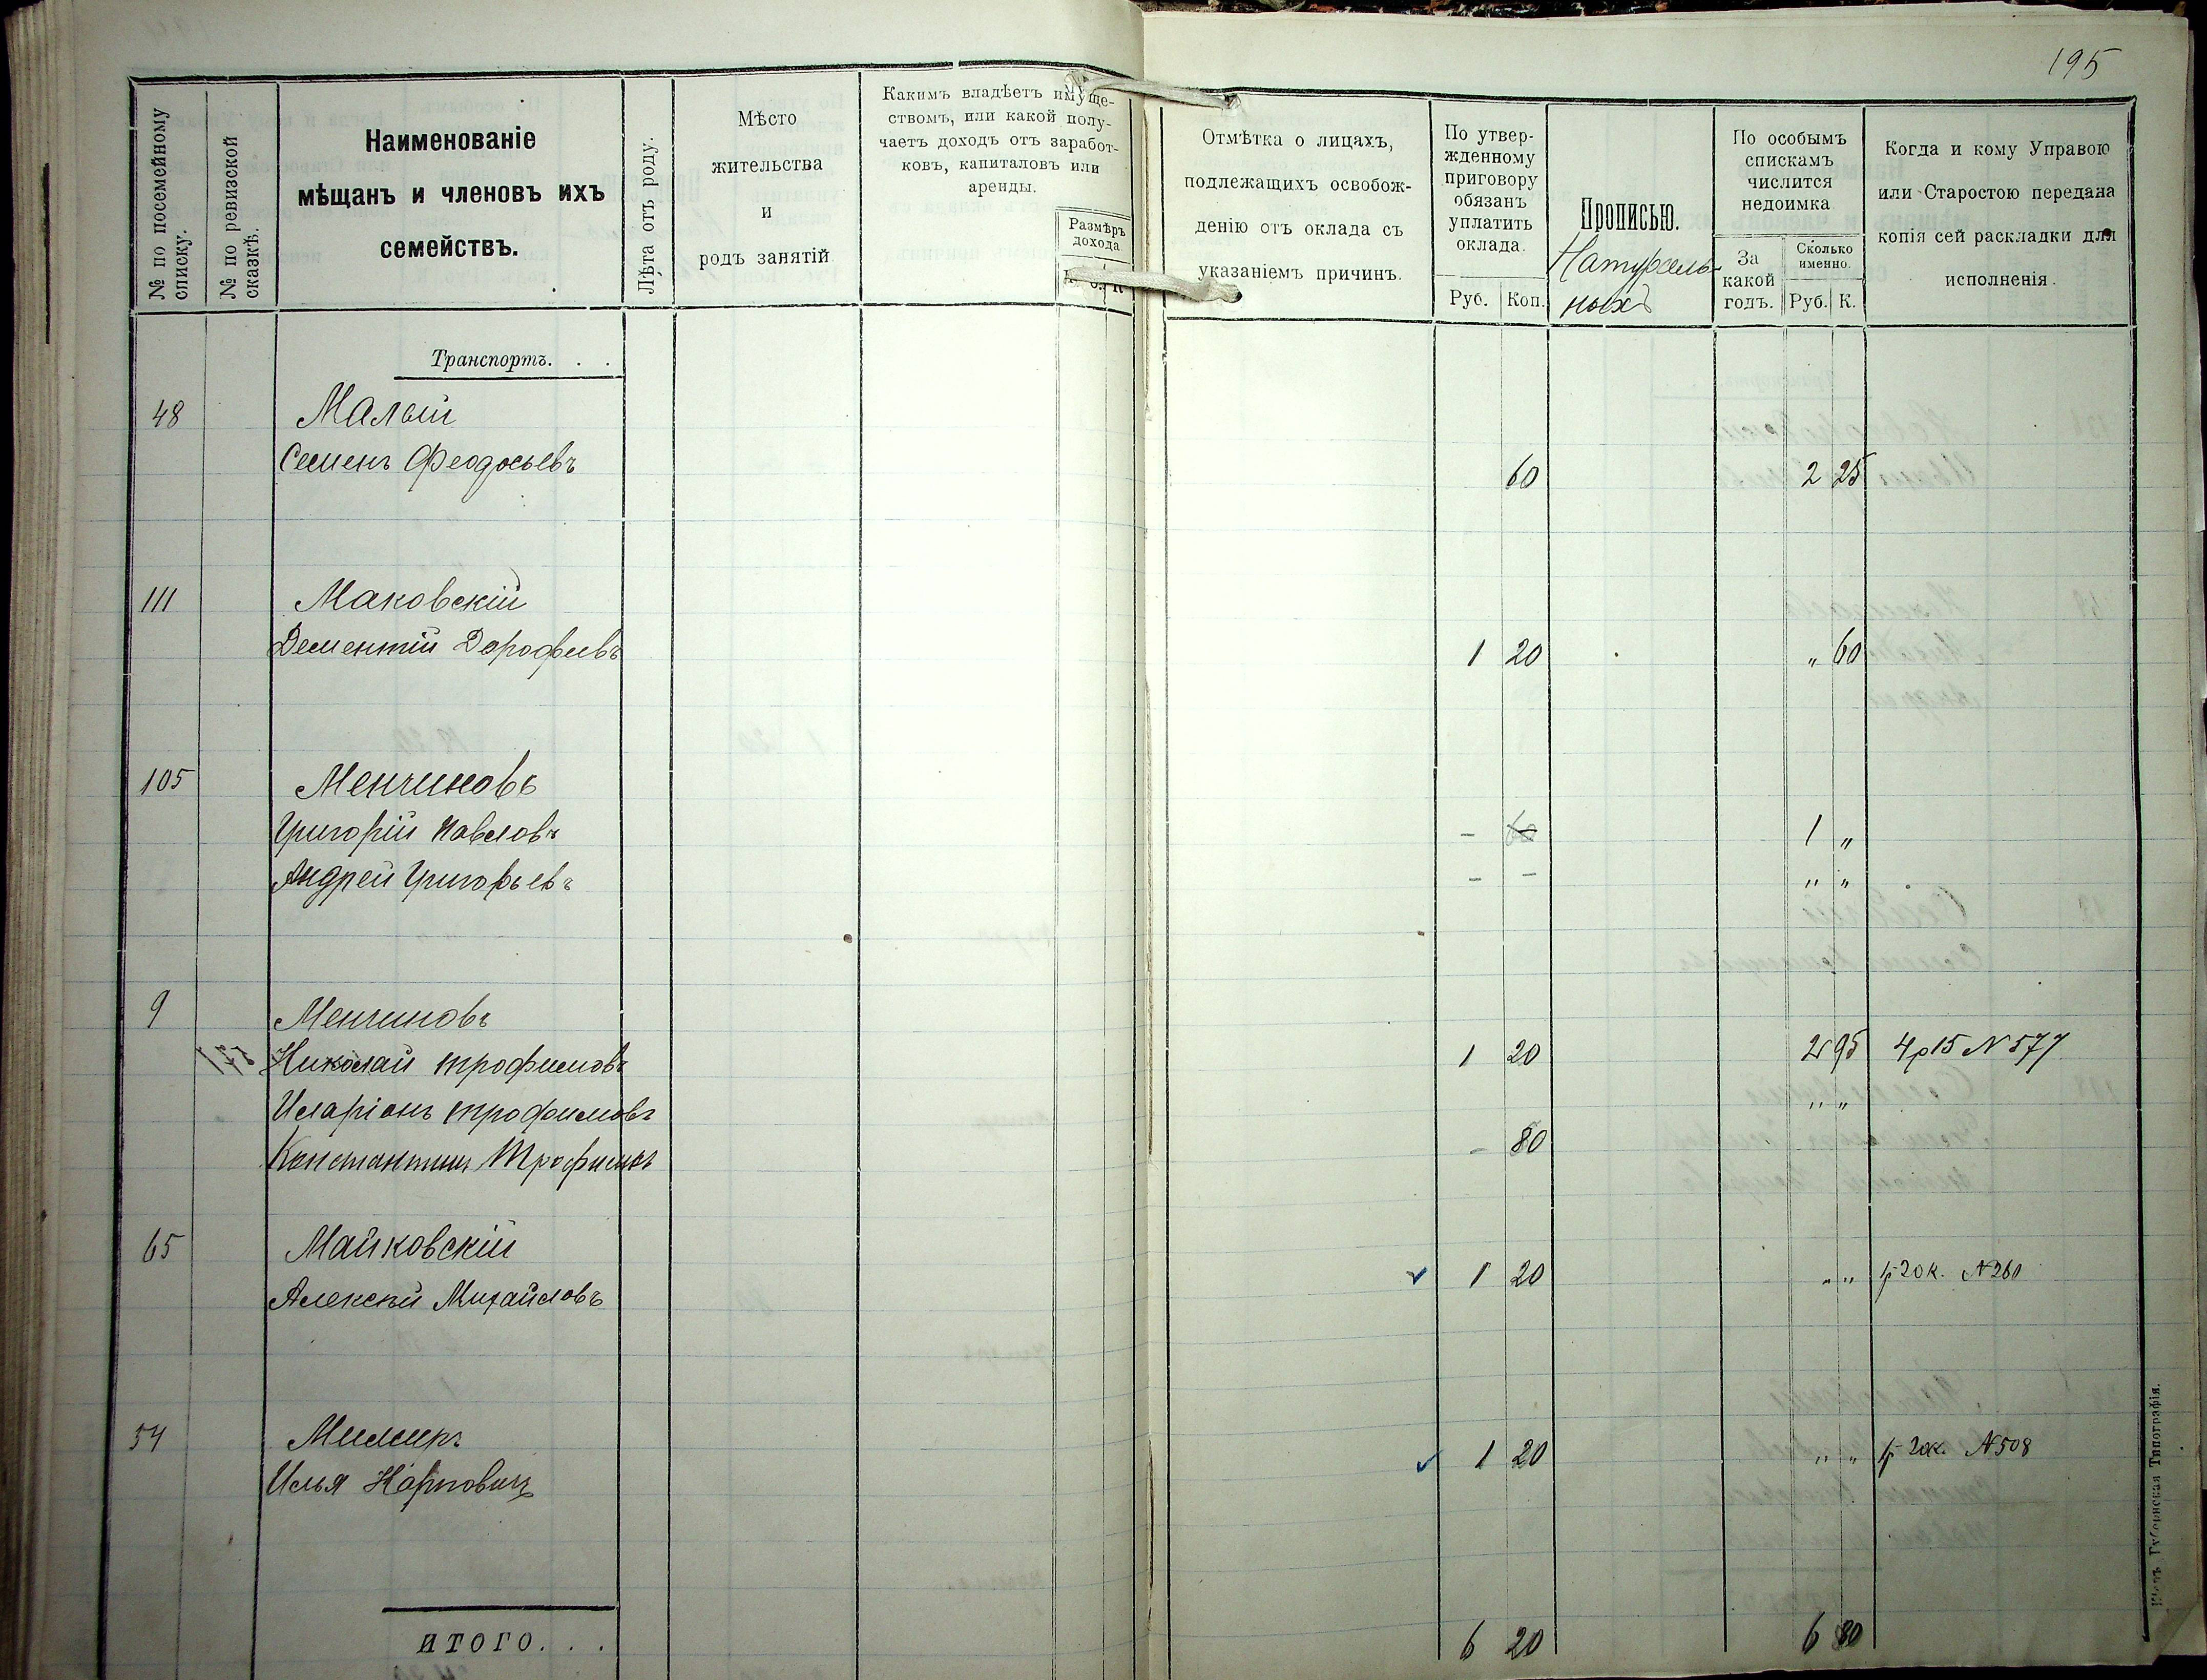 195
№ по посемейному списку.
№ по ревизской сказкѣ.
Наименованіе
мѣщанъ и членовъ ихъ
семействъ.
Лѣта отъ роду.
Мѣсто
жительства
и
родъ занятій.
Какимъ владѣетъ имуще-
ствомъ, или какой полу-
чаетъ доходъ отъ заработ-
ковъ, капиталовъ или
аренды.
Размѣръ
дохода
Отмѣтка о лицахъ,
подлежащихъ освобож-
денію отъ оклада съ
указаніемъ причинъ.
По утвер-
жденному
приговору
обязанъ
уплатить
оклада.
Руб. Коп.
Прописью.
Натураль-
ныхъ
По особымъ
спискамъ
числится
недоимка
За
какой
годъ.
Сколько
именно.
Руб. К.
Когда и кому Управою
или Старостою передана
копія сей раскладки для
исполненія.
Транспортъ. . .
48 Малый
Семенъ Феодосьевъ 60 2 25
111 Маковскій
Дементій Дорофеевъ 1 20 " 60
105 Менчиновъ
Григорій Павловъ - 60 1 "
Андрей Григорьевъ - - " "
9 Менчиновъ
Николай Трофимовъ 1 20 2 95 4р15 N 577
Иларіонъ Трофимовъ " "
Константинъ Трофимовъ - 80
65 Майковскій
Алексѣй Михайловъ 1 20 " " 1р 20к. N 260
54
Илья Карповичъ 1 20 " " 1р 20к. N 508
ИТОГО. . . 6 20 6 80
Кіевъ, Губернская Типографія.